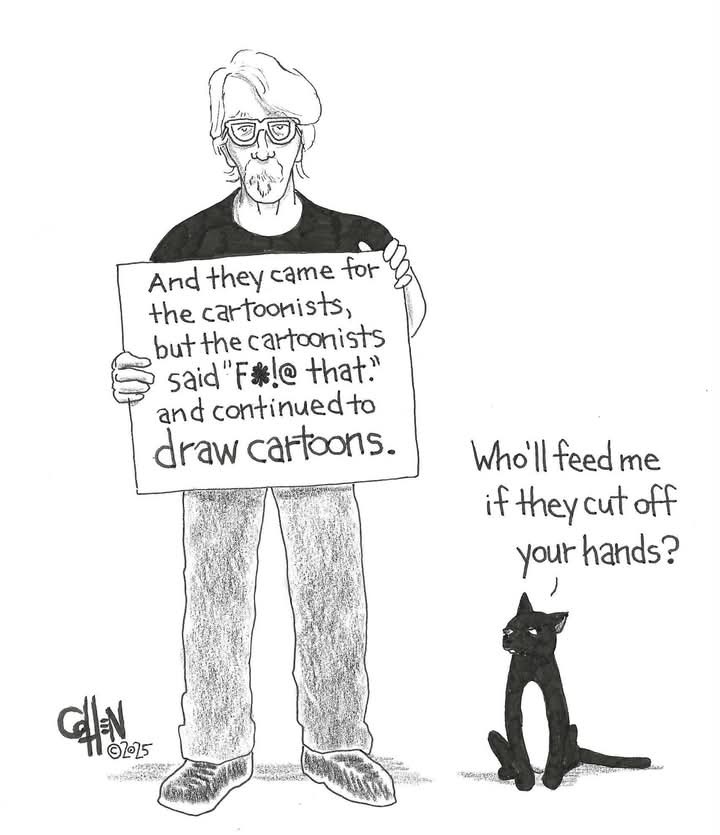 And they came for
the cartoonists,
but the cartoonists
said "F*!@ that."
and continued to
draw cartoons.
Who'll feed me
if they cut off
your hands?
COHEN
©2025